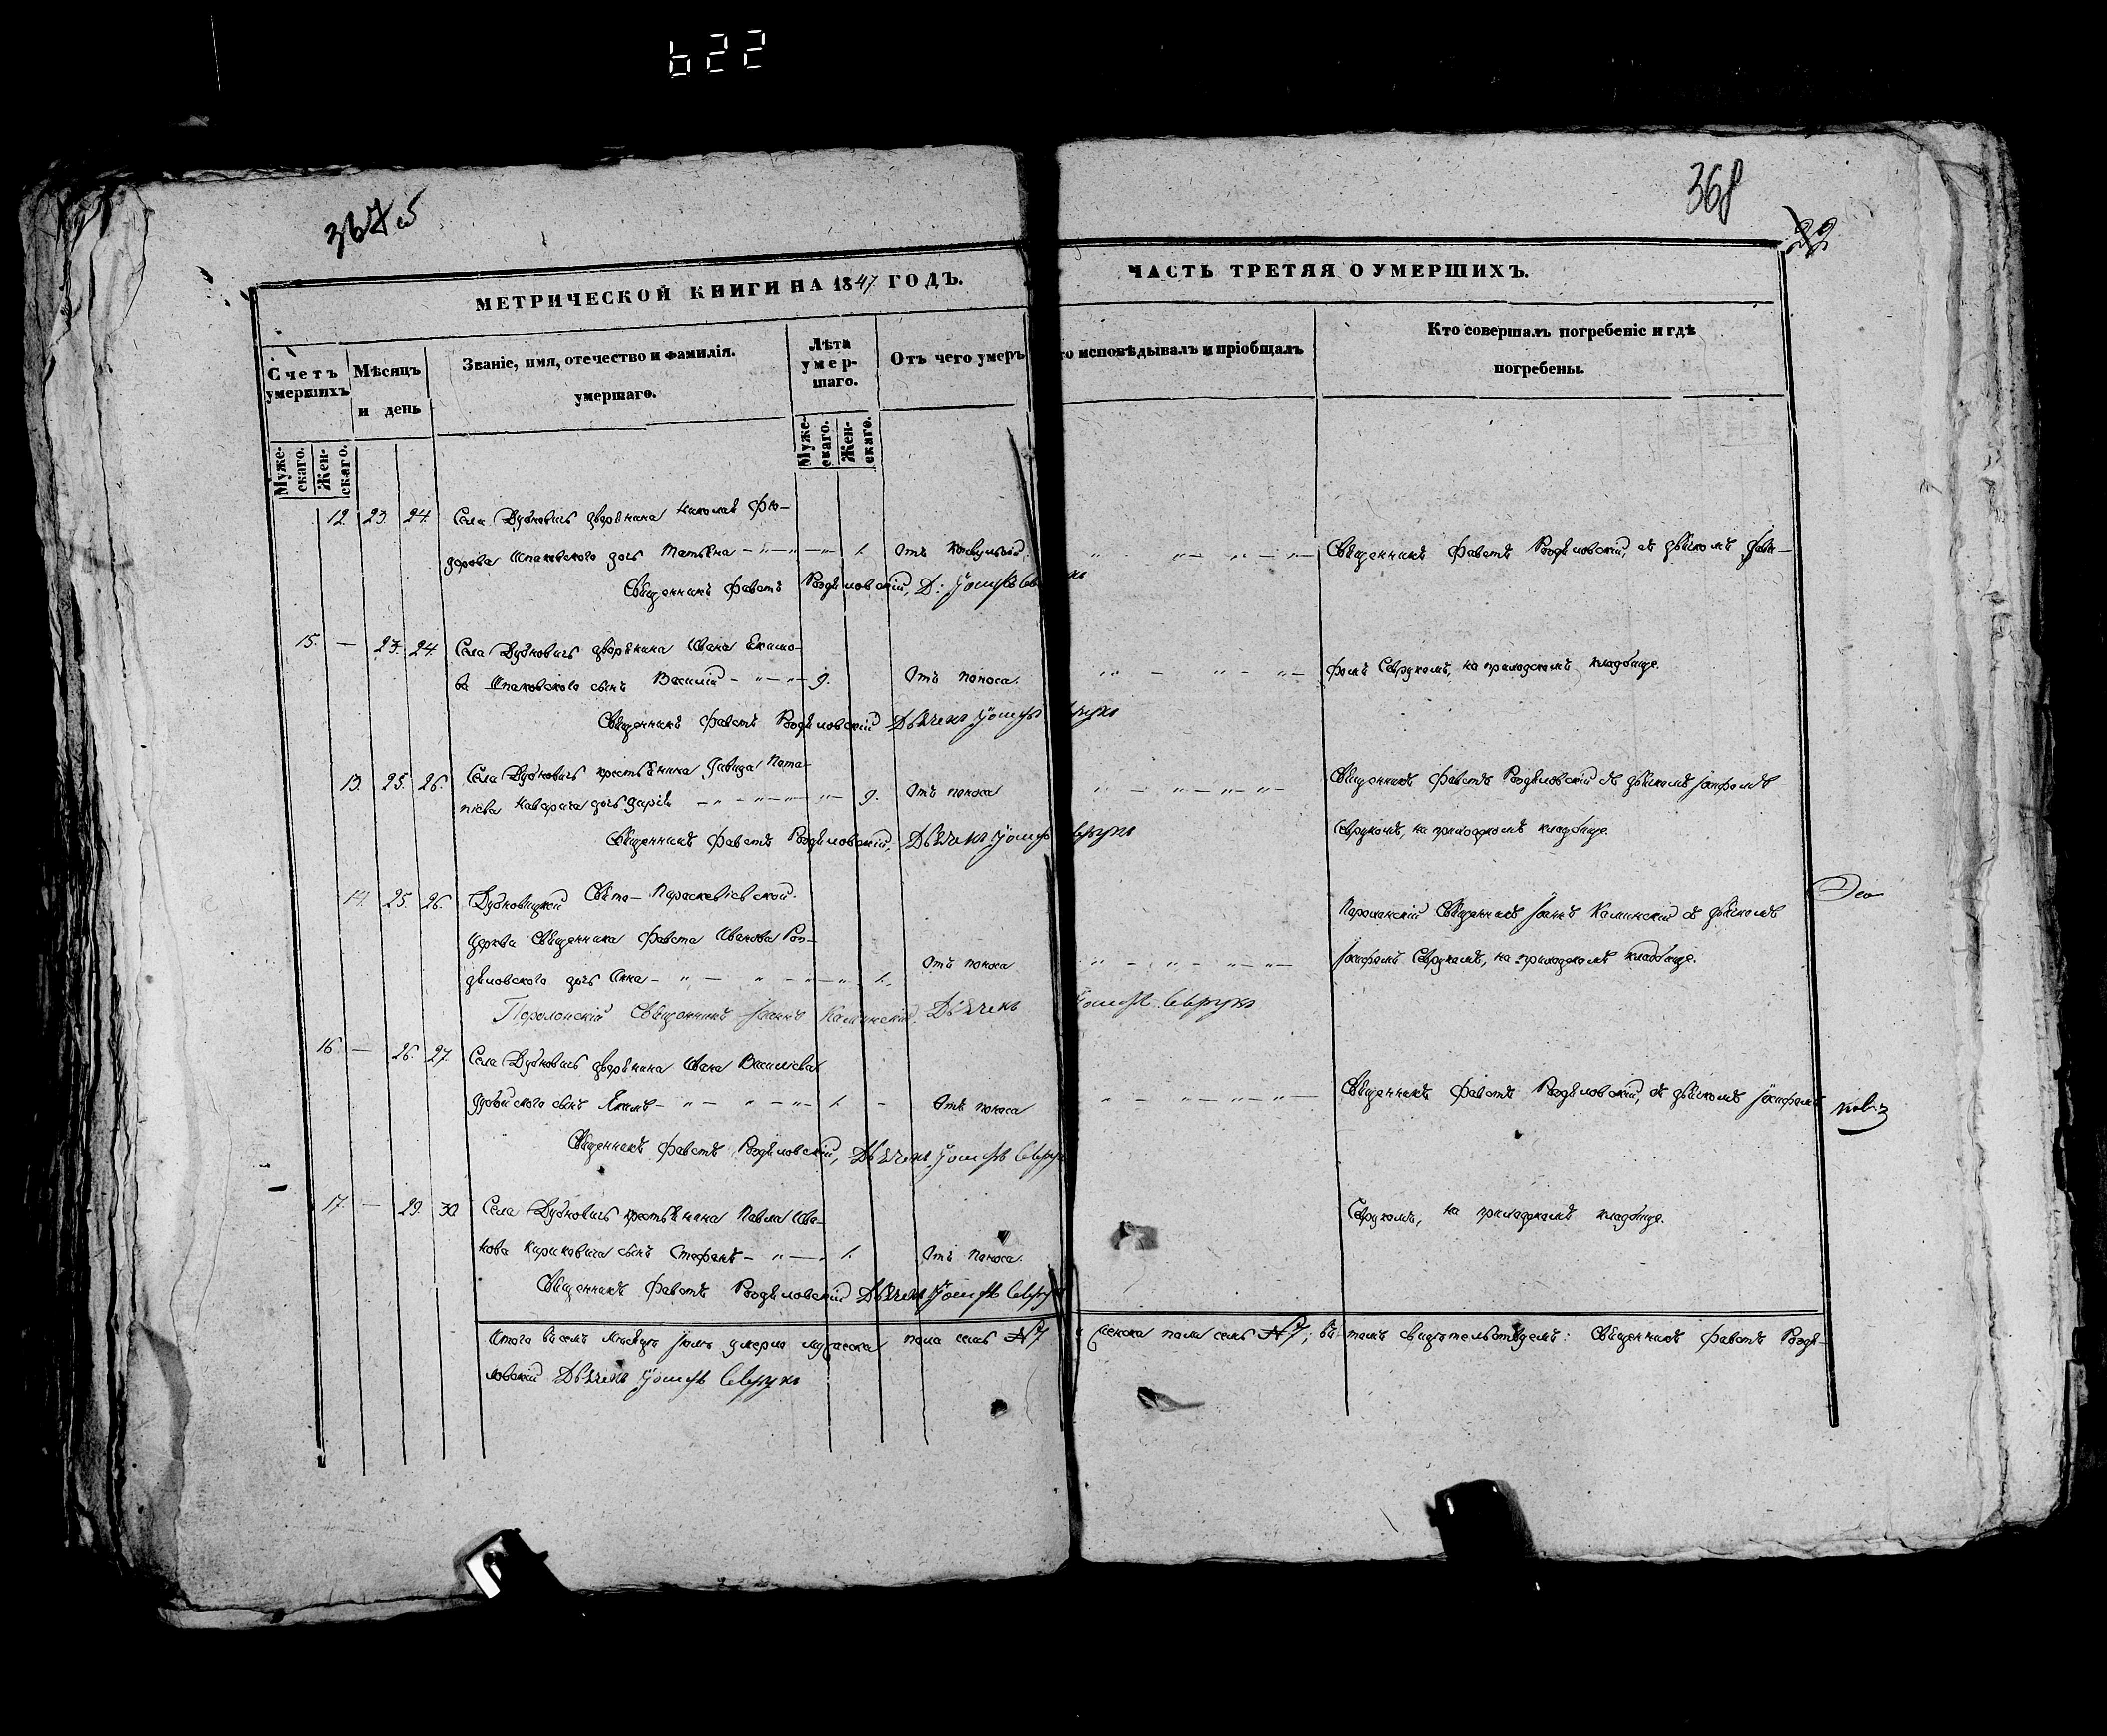 622
367 об
368
МЕТРИЧЕСКОЙ КНИГИ НА 1847 ГОДЪ.
ЧАСТЬ ТРЕТЯЯ О УМЕРШИХЪ.
Счетъ умершихъ
Мѣсяцъ и день
Званіе, имя, отечество и фамилія.
умершаго.
Лѣта умер-шаго.
Отъ чего умеръ
то исповѣдывалъ и пріобщалъ
Кто совершалъ погребеніе и гдѣ
погребены.
Муже-скаго. Жен-скаго.
Муже-скаго. Жен-скаго.
12. 23. 24. Села Дубновичь дворянина Николая Фео-
дорова дочь Татьяна 1. Отъ конвульсій. Священникъ Фавстъ Роздяловскій, съ дьячкомъ
Священникъ Фавстъ Роздяловскій, Д: Іосифъ
15. — 23. 24. Села Дубновичь дворянина Ивана Екимо-
ва сынъ Василій 9. Отъ поноса. фомъ Севрукомъ, на приходскомъ кладбище.
Священникъ Фавстъ Роздяловскій Дьячекъ Іосифъ Севрукъ
13. 25. 26. Села Дубновичь крестьянина Давида
дочь Дарія 9. Отъ поноса Священникъ Фавстъ Роздяловскій съ дьячкомъ Іосифомъ
Священникъ Фавстъ Роздяловскій, Дьячекъ Іосифъ Севрукъ Севрукомъ, на приходскомъ кладбище.
14. 25. 26. Дубновицкой Свято-Параскевіевской
церкви Священника Фавста Иванова Роз- Паролонскій Священникъ Іоаннъ Каминскій съ дьячкомъ
дяловского дочь Анна 1. Отъ поноса Іосифомъ Севрукомъ, на приходскомъ кладбище.
Паролонскій Священникъ Іоаннъ Каминскій. Дьячекъ Іосифъ Севрукъ
16 — 26. 27. Села Дубновичь дворянина Ивана Василіева
сынъ Якимъ 1. — Отъ поноса Священникъ Фавстъ Роздяловскій, съ дьячкомъ Іосифомъ
Священникъ Фавстъ Роздяловскій, Дьячекъ Іосифъ Севрукъ
17. — 29. 30. Села Дубновичь крестьянина Павла Ива- Севрукомъ, на приходскомъ кладбище.
нова Кириковича сынъ Стефанъ 1. Отъ поноса.
Священникъ Фавстъ Роздяловскій Дьячекъ Іосифъ Севрукъ
Итого въ семъ мѣсяцѣ умерло мужеска пола семь №7 женска пола семь №7; въ томъ свидѣтельствуемъ: Священникъ Фавстъ Роздя-
ловскій Дьячекъ Іосифъ Севрукъ